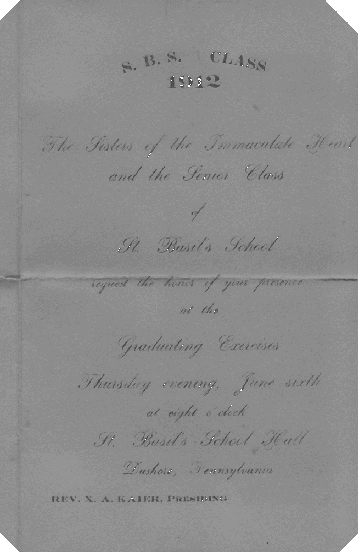 S. B. S. CLASS
1912
The Sisters of the Immaculate Heart
and the Senior Class
of
St. Basil's School
request the honor of your presence
at the
Graduating Exercises
Thursday evening, June sixth
at eight o'clock
St. Basil's School Hall
Dushore, Pennsylvania
REV. X. A. KAIER, PRESIDING